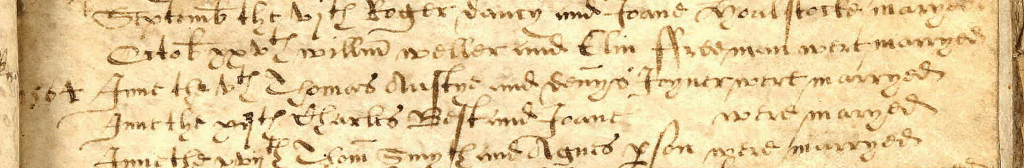 Septemb the vjth Roger dancy and Joane maryed
Octob xxvth willm weller and Elin ffreeman wert marryed
1564 June the vth Thomas Austye and dennys Joyner wert marryed
June the xijth Charles Best and Joane were maryed
June the xvijth Thom Smyth and Agnes pson were marryed